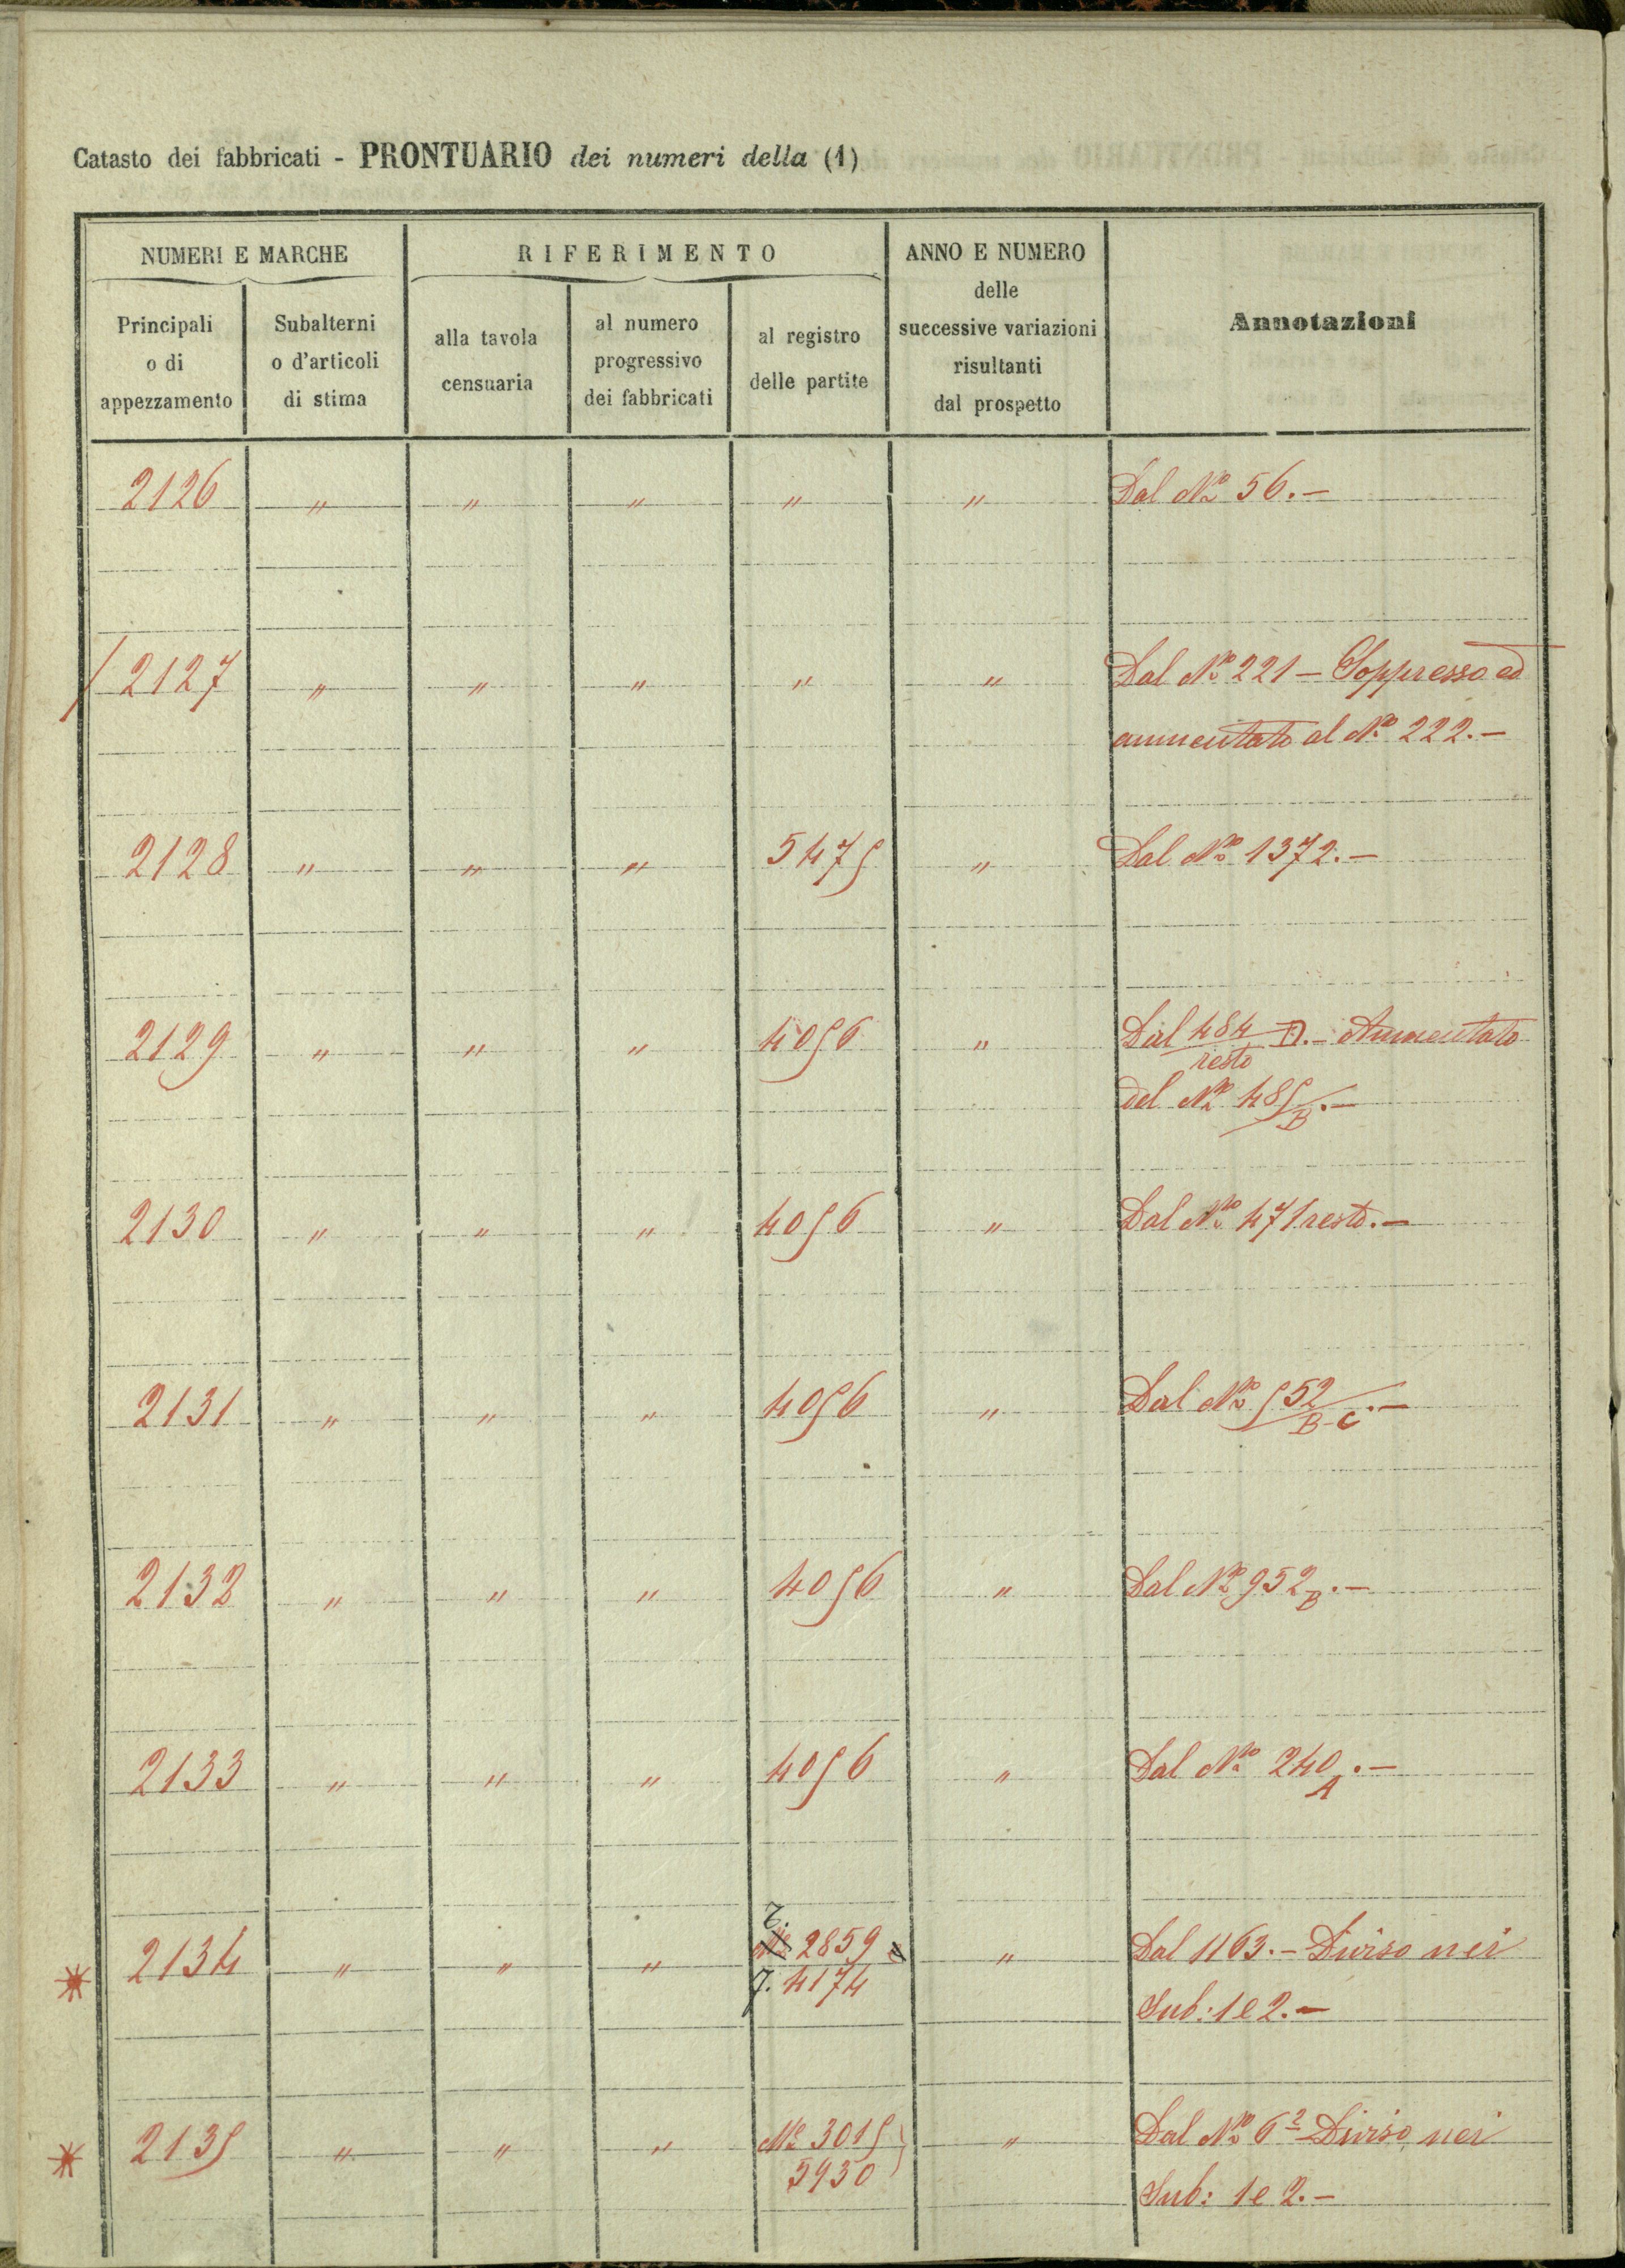 Catasto dei fabbricati - PRONTUARIO dei numeri della (1)
NUMERI E MARCHE
RIFERIMENTO
ANNO E NUMERO
delle
successive variazioni
risultanti
dal prospetto
Annotazioni
Principali
o di
appezzamento
Subalterni
o d'articoli
di stima
alla tavola
censuaria
al numero
progressivo
dei fabbricati
al registro
delle partite
2126 " " " " " Dal No 56.-
2127 " " " " " Dal No 221 - Soppresso ed
aumentato al No 222.-
2128 " " " 5475 " Dal No 1372.-
2129 " " " 4056 " Dal 484/resto D.- Aumentato
del No 485/B.-
2130 " " " 4056 " Dal No 471 resto.-
2131 " " " 4056 " Dal No 552/B-C.-
2132 " " " 4056 " Dal No 952 B.-
2133 " " " 4056 " Dal No 240 A.-
2134 " " " 2859 " Dal 1163.- Diviso nei
7. 4174
Sub: 1 e 2.-
2135 " " " No 3015 " Dal No 6 2 - Diviso nei
5930
Sub: 1 e 2.-